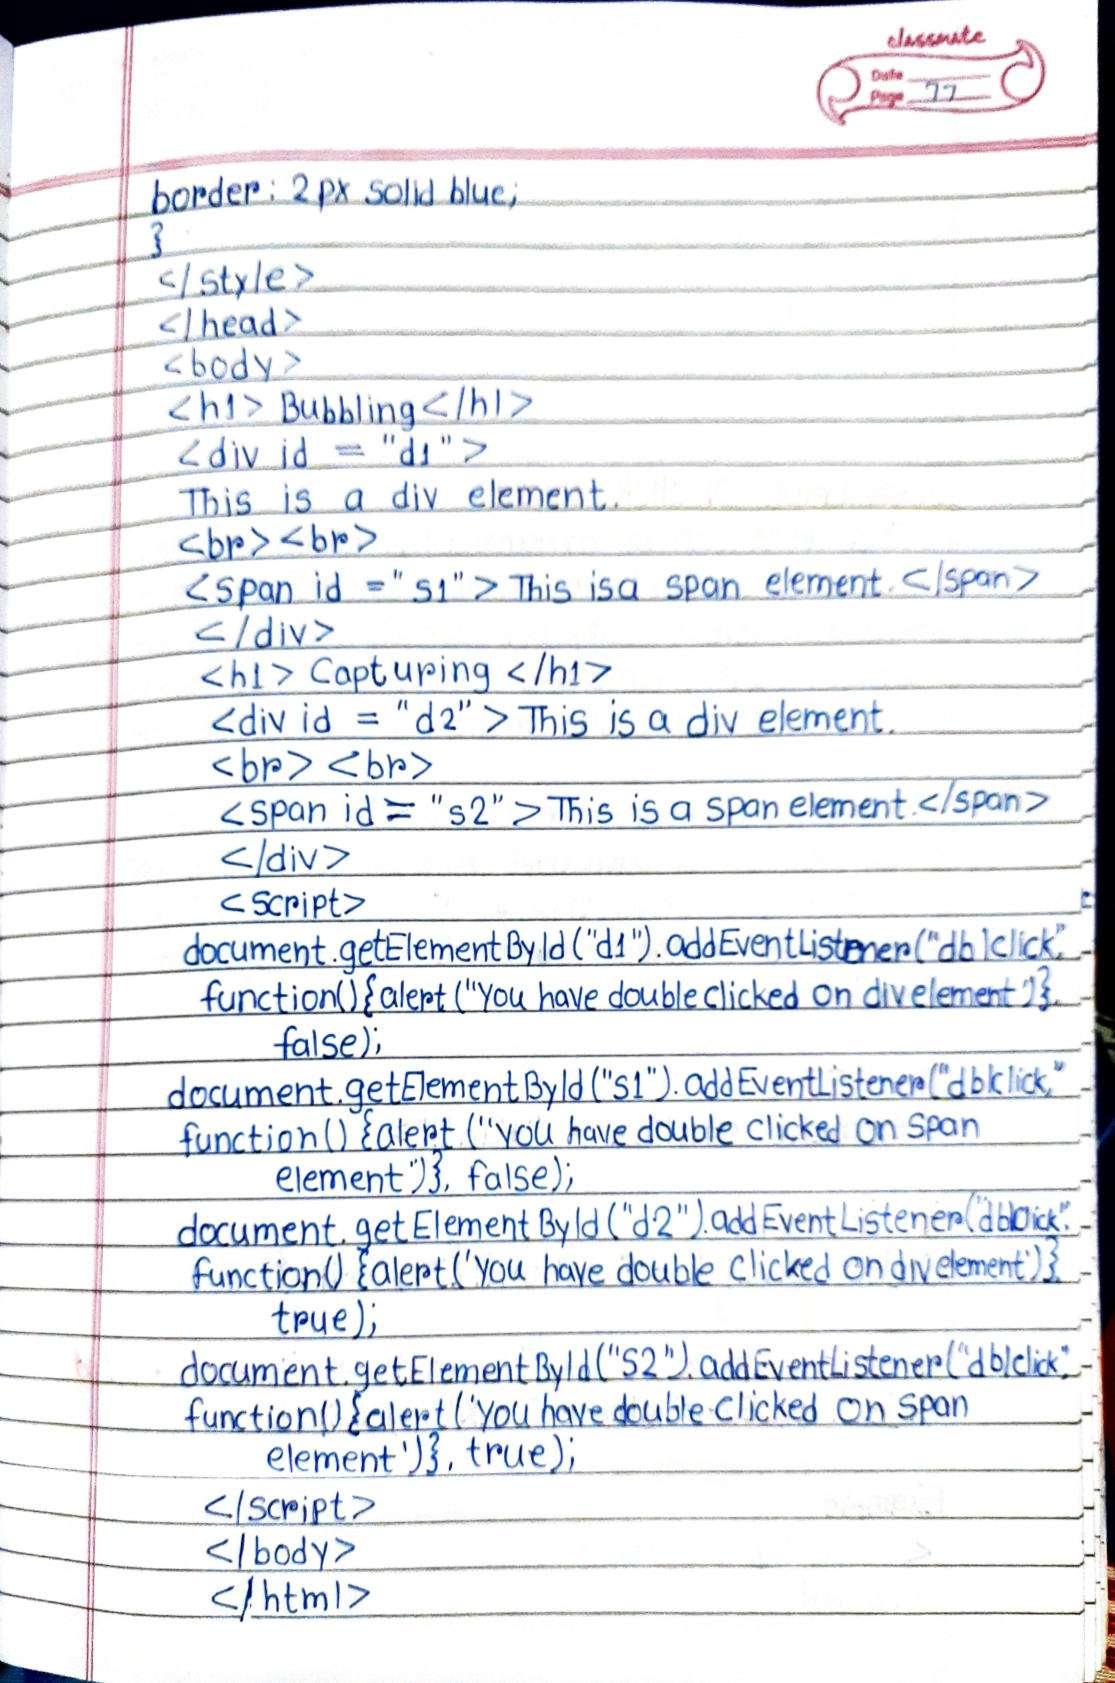 classmate
Date
Page 77
border: 2px solid blue;
}
</style>
</head>
<body>
<h1> Bubbling</h1>
<div id = "d1">
This is a div element.
<br><br>
<span id ="s1"> This is a span element.</span>
</div>
<h1> Capturing </h1>
<div id = "d2"> This is a div element.
<br> <br>
<span id = "s2"> This is a span element.</span>
</div>
<script>
document.getElementById("d1").addEventListener("dblclick",
function(){alert("You have double clicked on div element")},
false);
document.getElementById("s1").addEventListener("dblclick,"
function() {alert ("you have double clicked on span
element")}, false);
document.getElementById("d2").addEventListener("dblclick",
function() {alert('you have double clicked on div element')}
true);
document.getElementById("S2").addEventListener("dblclick",
function(){alert('you have double clicked on span
element')}, true);
</script>
</body>
</html>